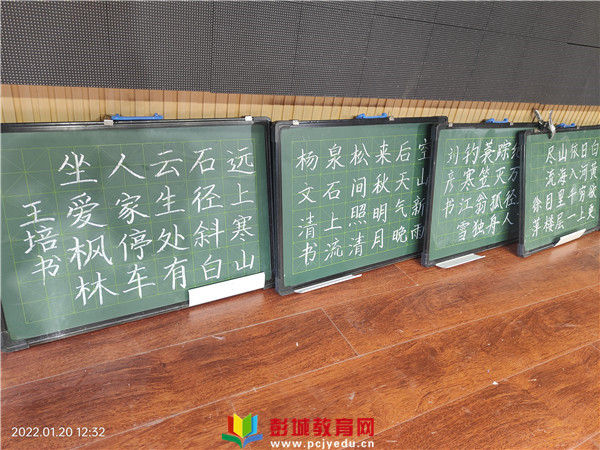 远上寒山
石径斜白
云生处有
人家停车
坐爱枫林
王培书
空山新雨
后天气晚
来秋明月
松间照清
泉石上流
杨文清书
绝万径人
踪灭孤舟
蓑笠翁独
钓寒江雪
刘彦书
白日依山尽
黄河入海流
欲穷千里目
更上一层楼
徐萍
2022.01.20 12:32
彭城教育网
www.pcjyedu.cn